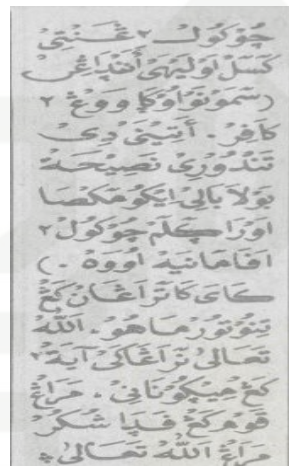 چوكول٢ ڠـنـتي
كسل اوليهي أندڠي
(سمونو اوݢا ووڠ٢
كافر. أتيني دي
تندوري نصيحة
بولا بالي ايكو مكصا
اورا ڮلم چوكول٢
افامانيه اووه.)
كاي كاترڠان كڠ
تتوتور ماهو. الله
تعالى نرڠاكي آية٢
كڠ ميكوناني. مراڠ
قوم كڠ فدا شكر
مراڠ الله تعالى